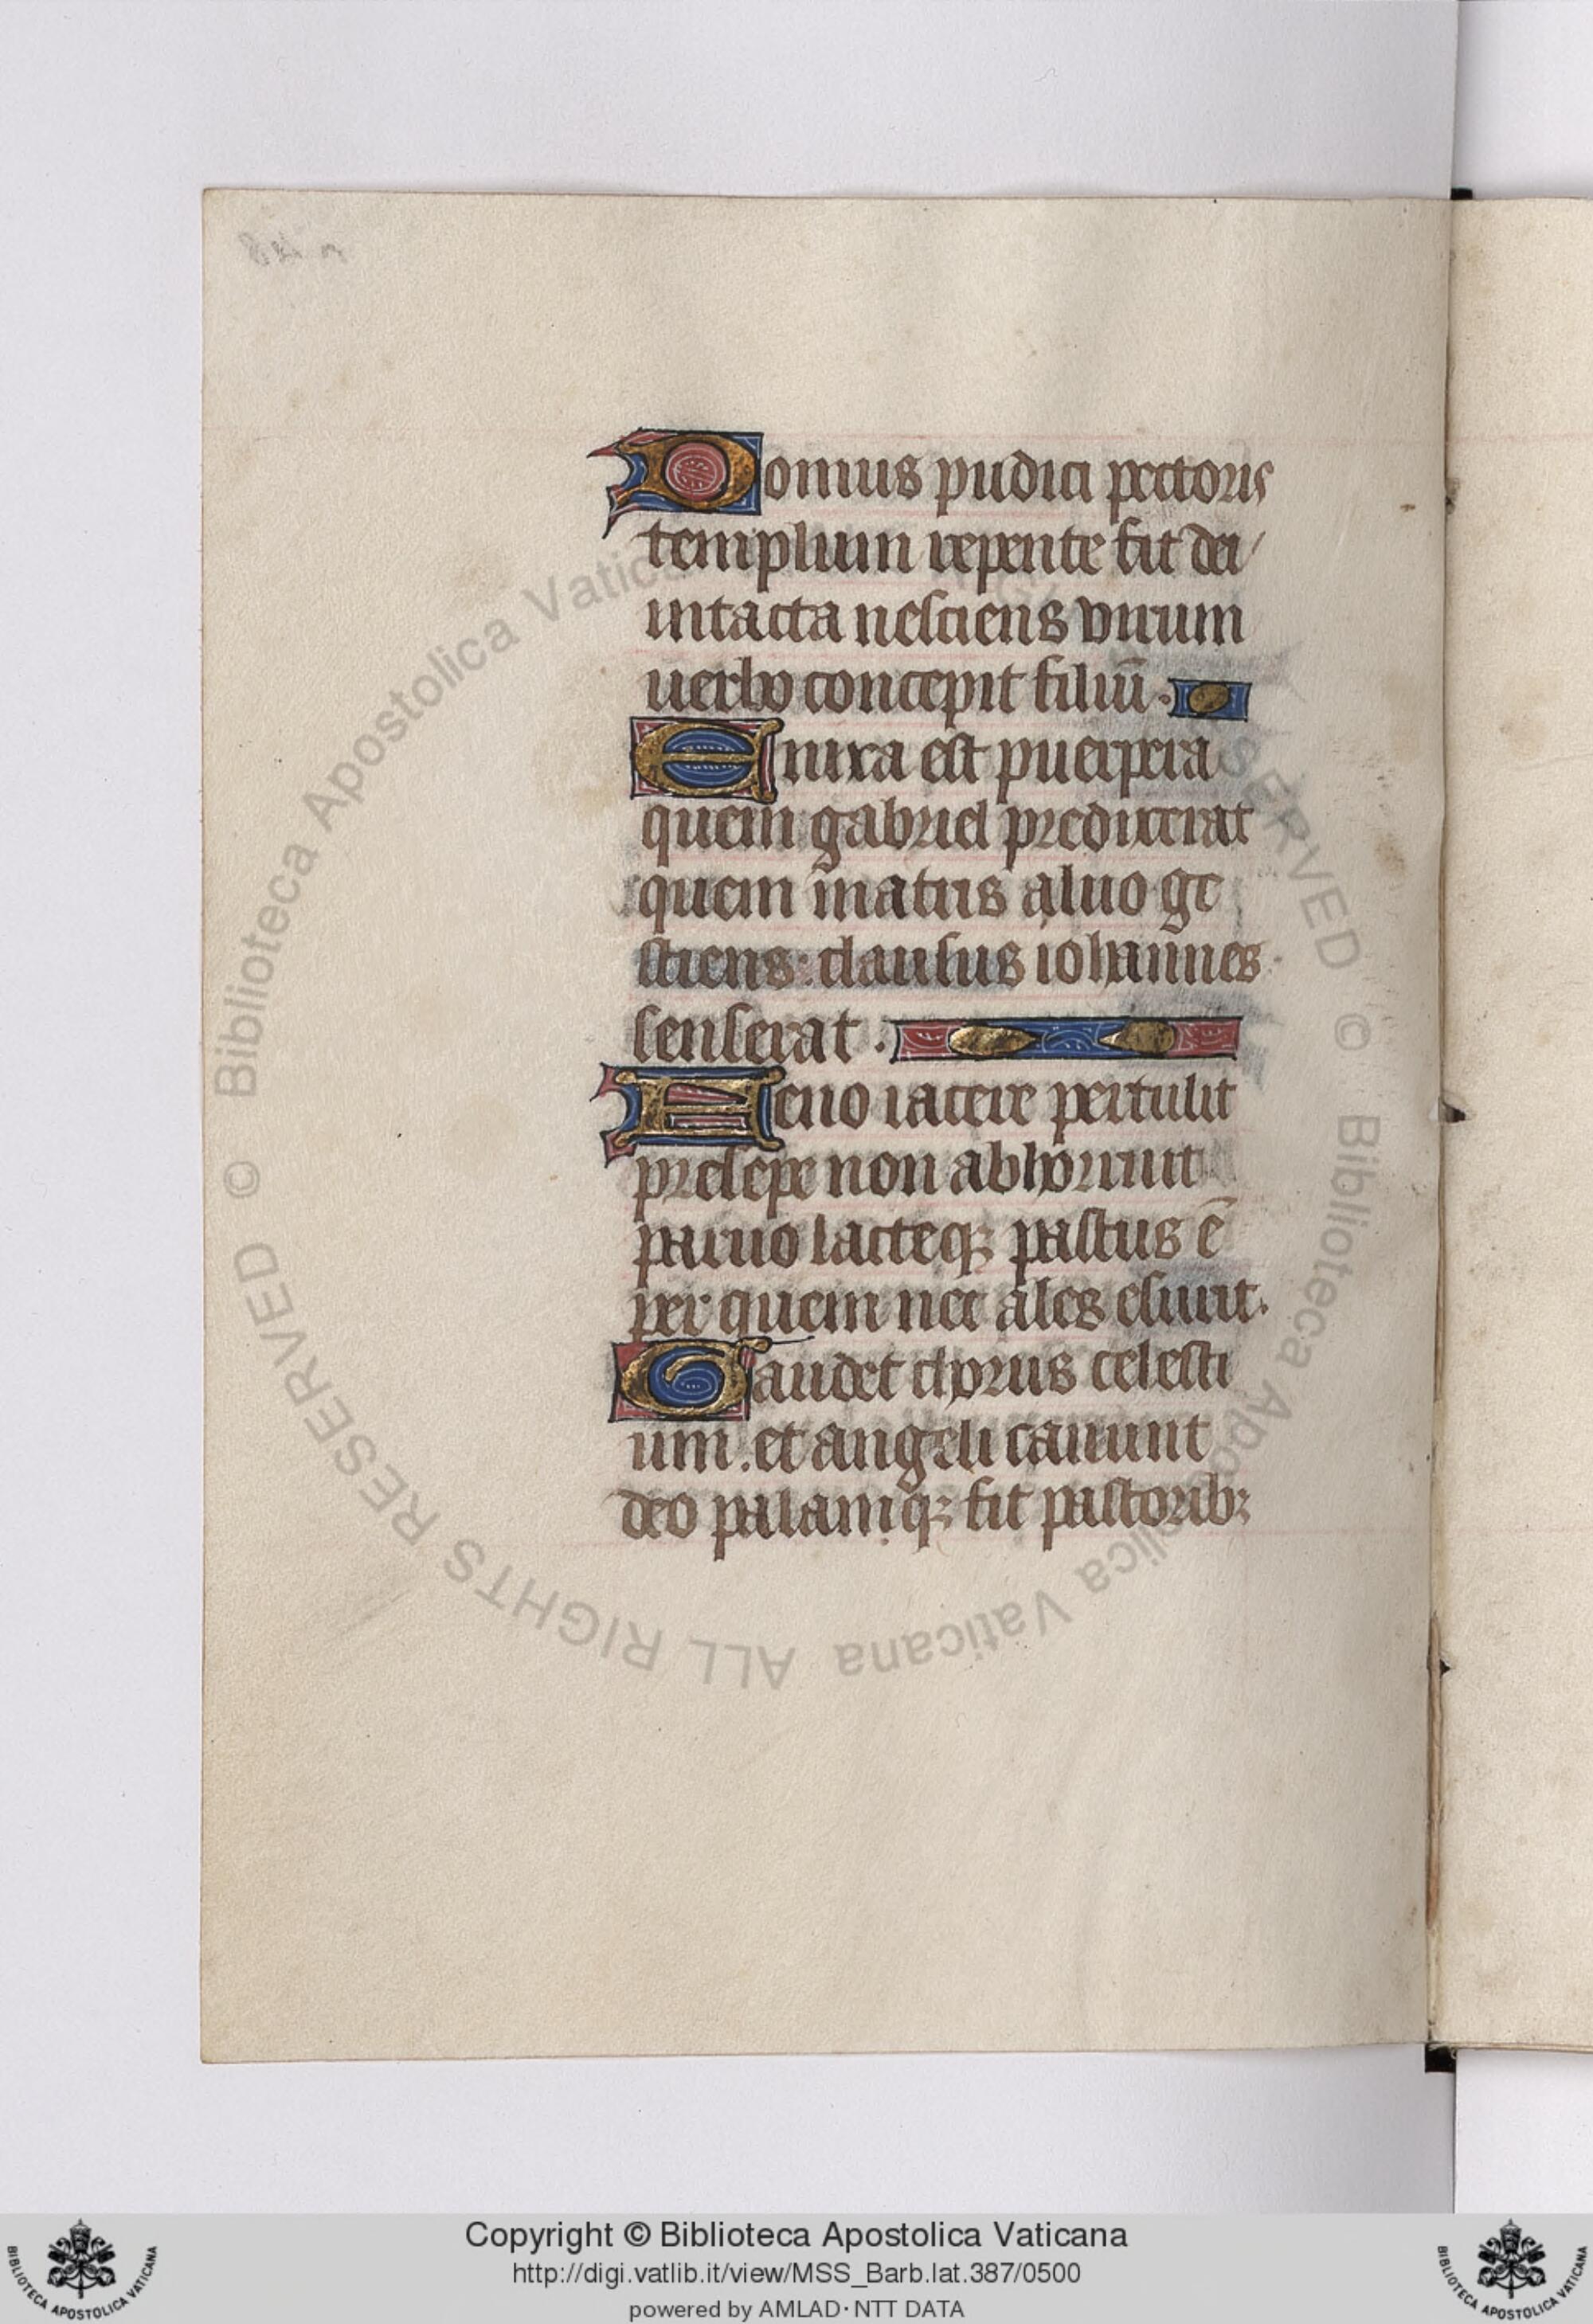 Domus pudici pectoris
templum repente fit dei
intacta nesciens virum
uerbo concepit filiū.
Enixa est puerpera
quem gabriel predixerat
quem matris aluo ge
stiens: clausus iohannes
senserat.
Feno iacere pertulit
presepe non abhorruit
paruo lacteqꝫ pastus ē
per quem nec ales esurit.
Gaudet chorus celesti
um. et angeli canunt
deo palamqꝫ fit pastoribꝫ
© Biblioteca Apostolica Vaticana ALL RIGHTS RESERVED
Copyright © Biblioteca Apostolica Vaticana
http://digi.vatlib.it/view/MSS_Barb.lat.387/0500
powered by AMLAD·NTT DATA
BIBLIOTECA APOSTOLICA VATICANA
BIBLIOTECA APOSTOLICA VATICANA